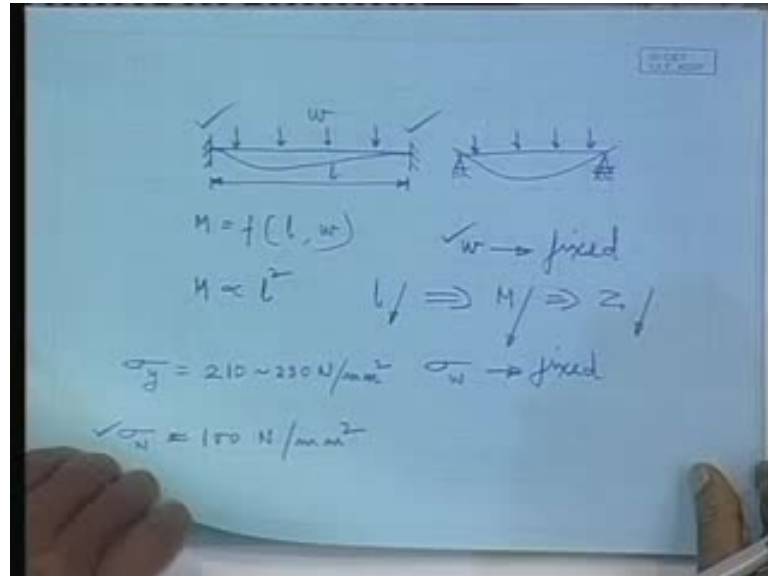 w
l
M = f(l, w)
✓ w → fixed
M ∝ l²
l ↓ ⇒ M ↓ ⇒ Z ↓
σy = 210 ~ 230 N/mm²
σw → fixed
✓ σw = 150 N/mm²